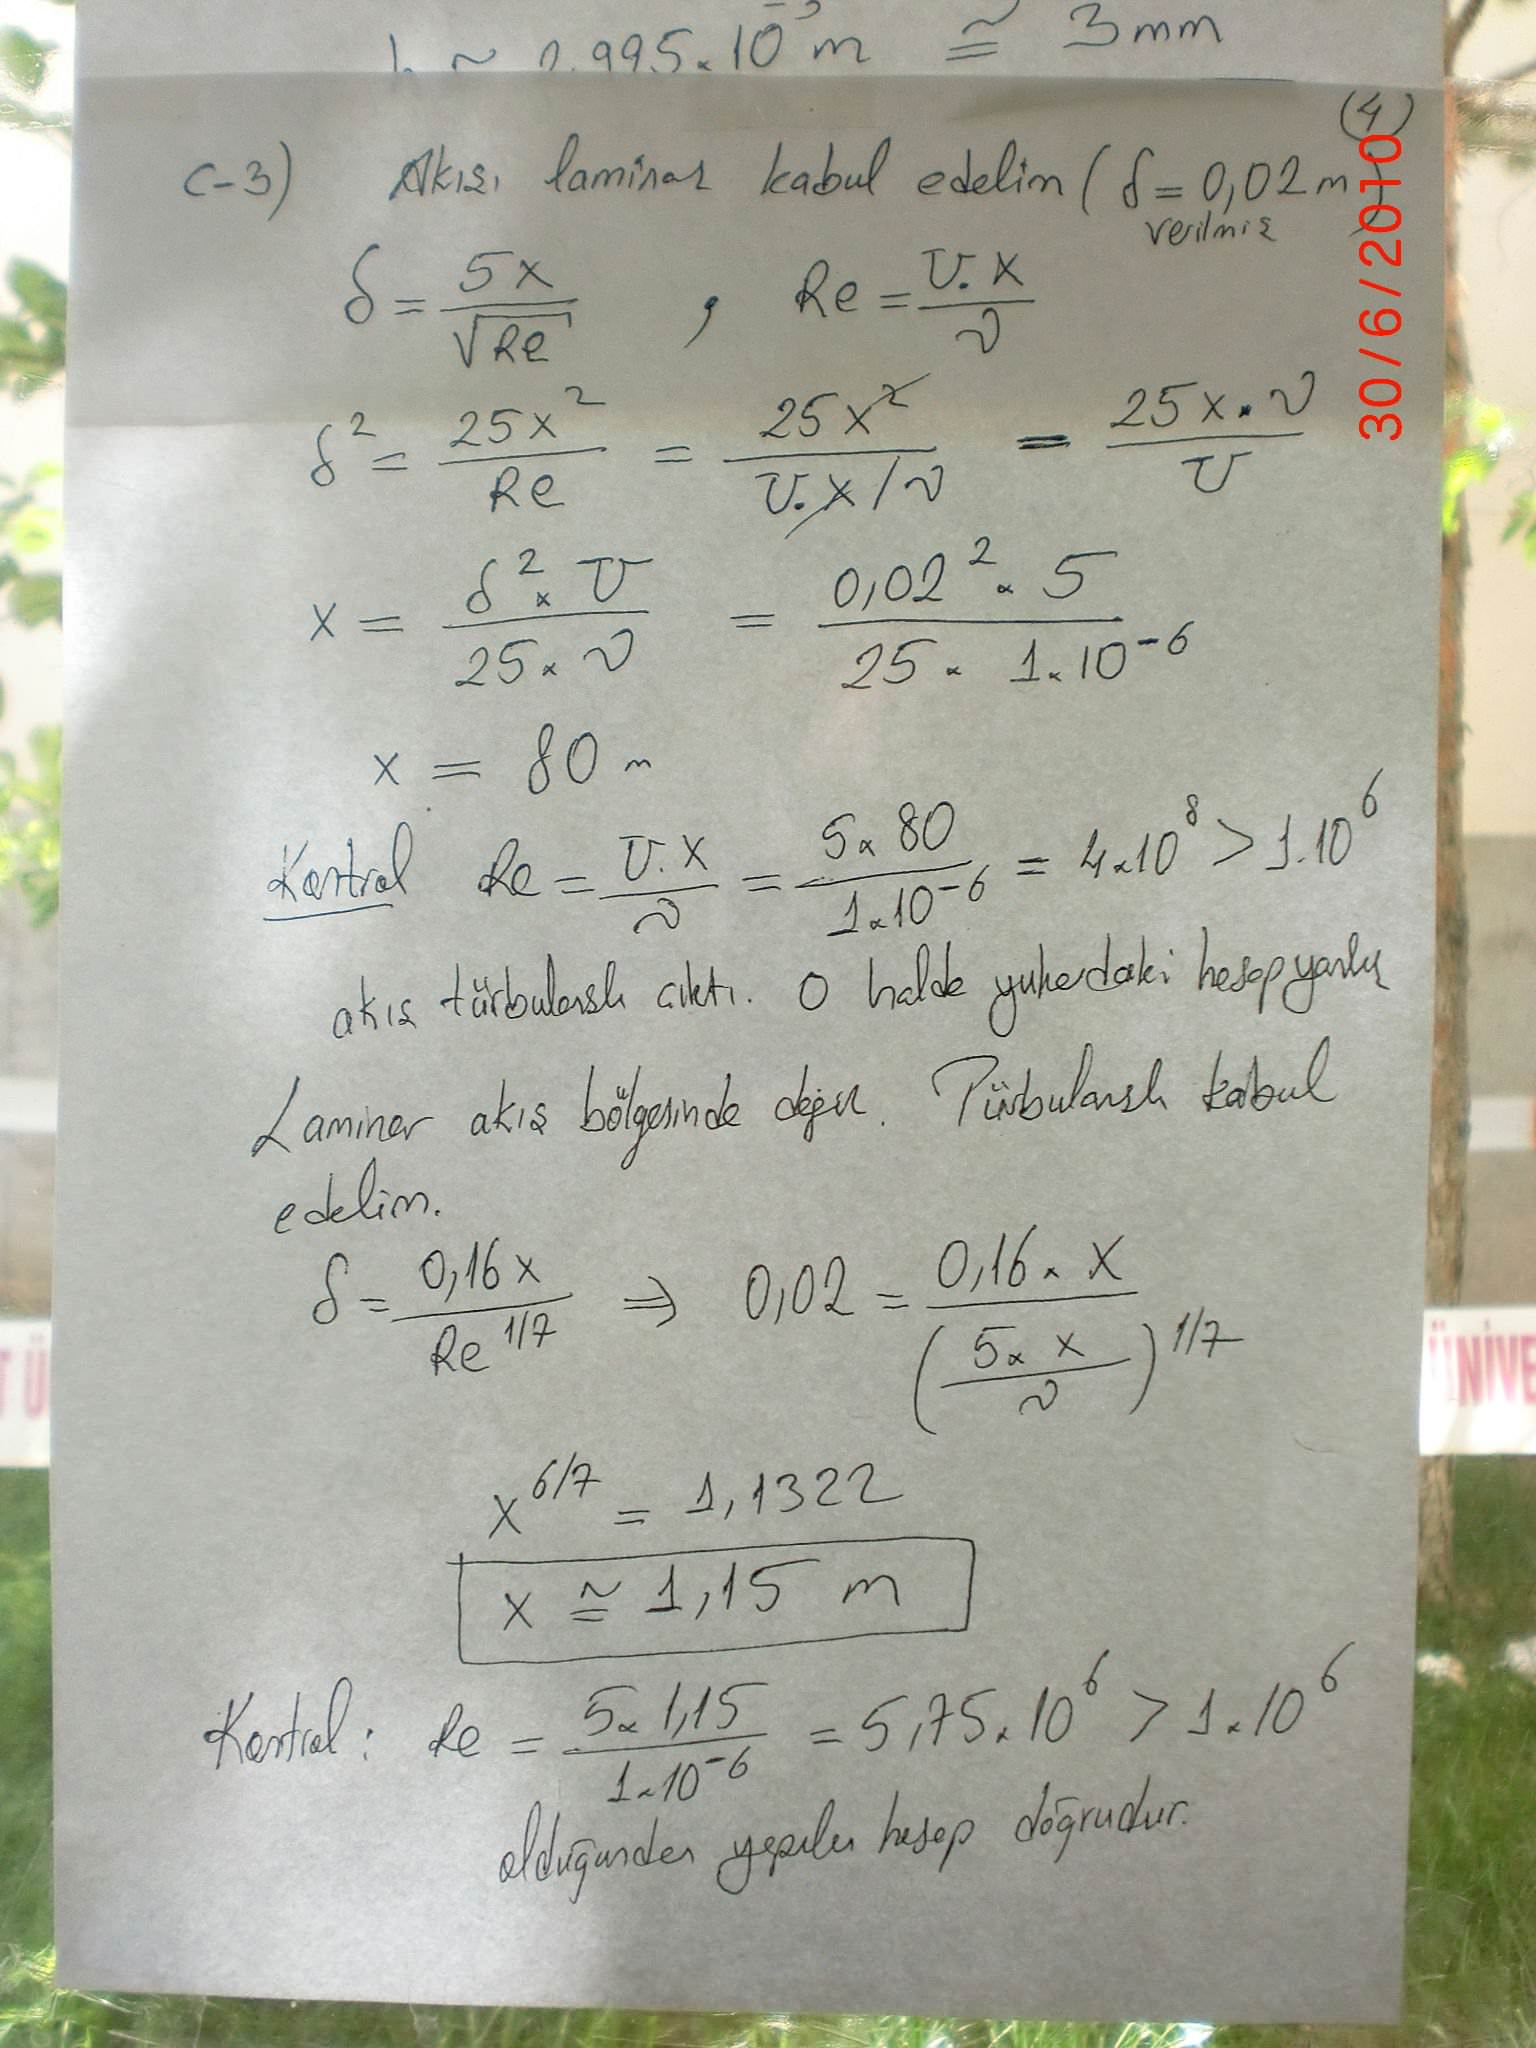 ≈ 2.995×10⁻³ m ≅ 3mm
(4)
C-3) Akışı laminar kabul edelim (δ = 0,02 m)
verilmiş
δ = 5x / √Re , Re = U.x / ν
δ² = 25x² / Re = 25x² / U.x/ν = 25x.ν / U
x = δ² × U / 25 × ν = 0,02² × 5 / 25 × 1×10⁻⁶
x = 80 m
Kontrol Re = U.x / ν = 5×80 / 1×10⁻⁶ = 4×10⁸ > 1.10⁶
akış türbülanslı çıktı. O halde yukardaki hesap yanlış
Laminer akış bölgesinde değil. Türbülanslı kabul
edelim.
δ = 0,16x / Re^1/7 ⇒ 0,02 = 0,16×x / (5×x / ν)^1/7
x^6/7 = 1,1322
x ≅ 1,15 m
Kontrol: Re = 5×1,15 / 1×10⁻⁶ = 5,75×10⁶ > 1×10⁶
olduğundan yapılan hesap doğrudur.
30/6/2010
T Ü
ÜNİVE